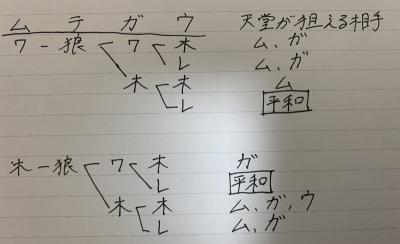 ム テ ガ ウ 天堂が狙える相手
ワ ー 狼 ワ 木 ム、ガ
レ ム、ガ
木 木 ム
レ 平和
木 ー 狼 ワ 木 ガ
レ 平和
木 木 ム、ガ、ウ
レ ム、ガ